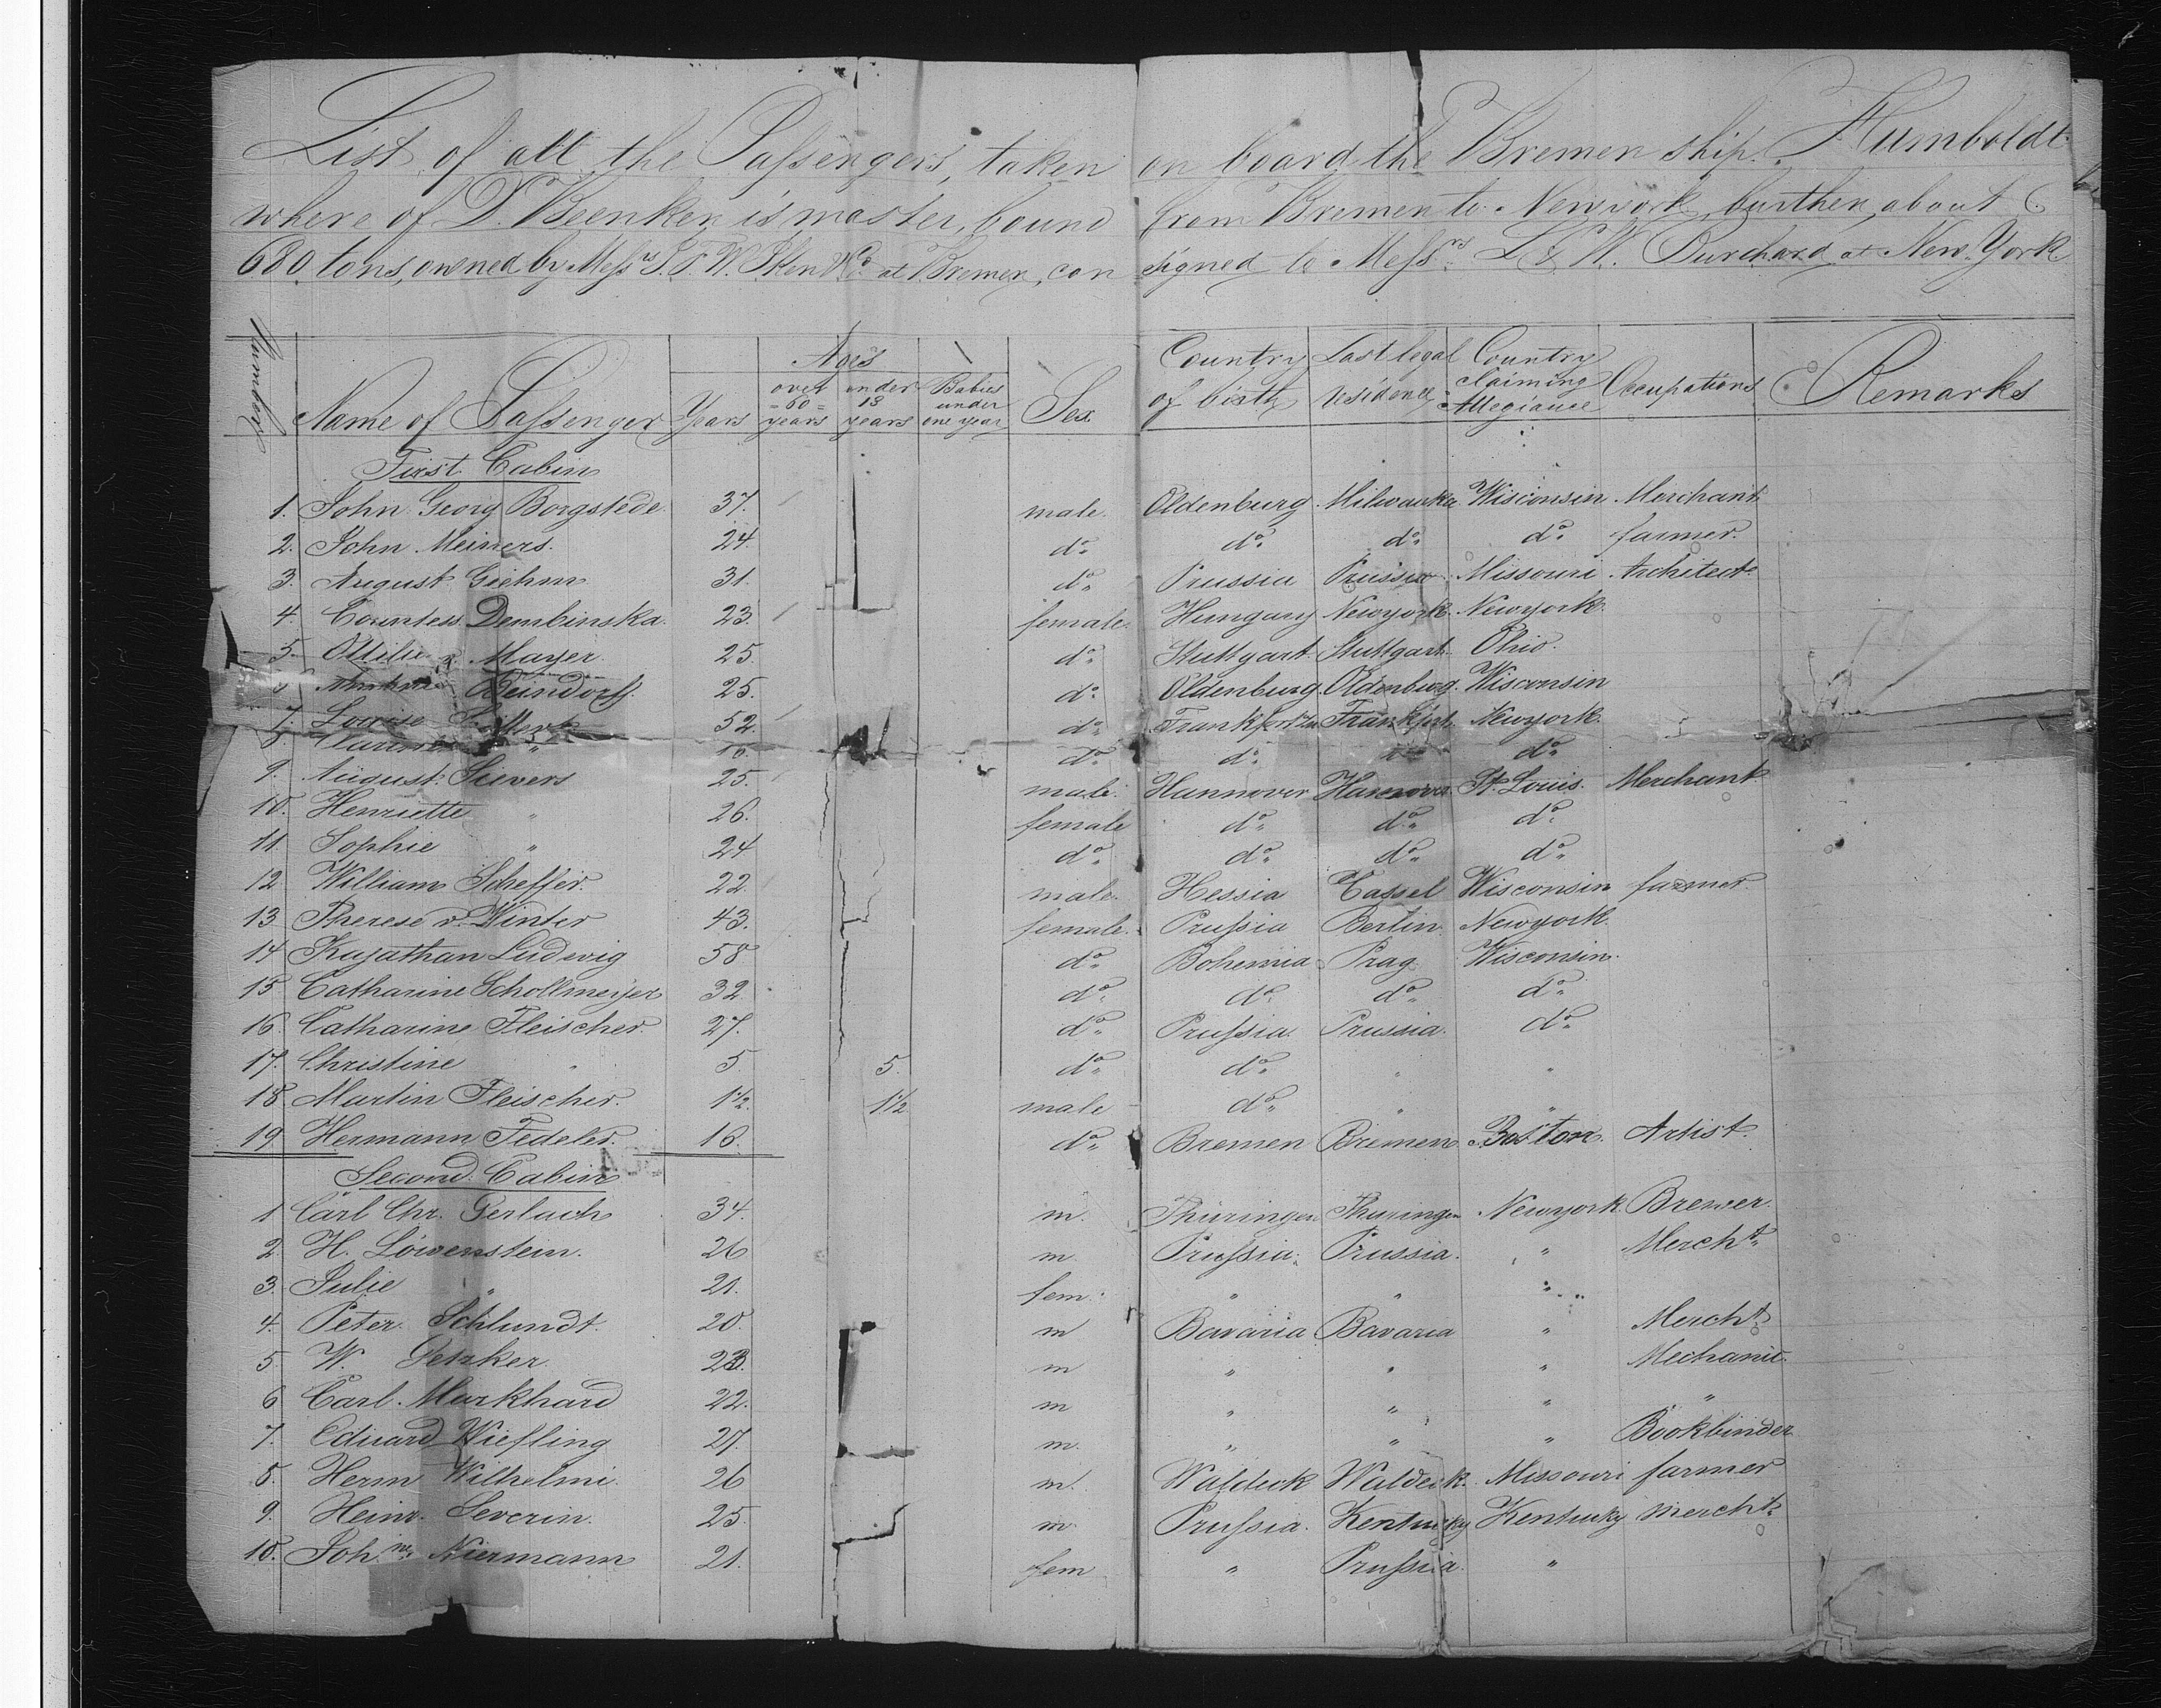 List of all the Passengers, taken on board the Bremen ship Humboldt
where of D. Beenken is master, bound from Bremen to Newyork, burthen about
680 tons, owned by Messrs at Bremen, consigned to Messrs L & W. Burchard at New York
Number Name of Passenger Years Ages over 60 years under 13 years Babies under one year Sex Country of birth Last legal residence Country claiming Allegiance Occupations Remarks
First Cabin
1. John Georg Borgstede. 37. male. Oldenburg Milwauka Wisconsin Merchant
2. John Meiners. 24. do. do. do. do. farmer.
3. August Giehm 31. do. Prussia Prussia Missouri Architect
4. Countess Dembinska. 23. female. Hungary Newyork. Newyork.
5. Ottilie v. Mayer. 25. do. Stuttgart Stuttgart Ohio.
Deindorff. 25. do. Oldenburg. Oldenburg. Wisconsin
7. Louise 52. do. Frankfort Frankfort Newyork.
8. " do. do. do.
9. August Sievers 25. male. Hannover Hannover St. Louis. Merchant
10. Henriette " 26. female do. do. do.
11. Sophie " 24 do. do. do. do.
12 William Scheffer. 22. male. Hessia Cassel Wisconsin farmer
13 Therese v. Winter 43. female. Prussia Berlin. Newyork.
14 Kajathan Ludwig 58 do. Bohemia Prag Wisconsin.
15 Catharine Schollmeijer 32 do. do. do. do.
16. Catharine Fleischer. 27. do. Prussia. Prussia. do.
17. Christine " 5 5. do. do. " "
18. Martin Fleischer. 1 1/2. 1 1/2 male do. " "
19. Hermann Fedeler. 18. do. Bremen Bremen Boston. Artist.
Second Cabin
1 Carl Chr. Gerlach 34. m. Thuringen Thuringen Newyork Brewer.
2. H. Löwenstein. 26 m. Prussia. Prussia. " Mercht.
3. Julie " 21. fem. " " "
4. Peter Schlundt. 20. m Bavaria Bavaria " Mercht.
5. W. 23. m " " " Mechanic.
6 Carl Markhard 22. m " " " "
7. Eduard Wiefling 27. m. " " " Bookbinder
8. Herm Wilhelmi. 26 m. Waldeck Waldeck. Missouri farmer
9. Heinr. Severin. 25. m. Prussia. Kentucky Kentucky mercht.
10. Joh.ne Niermann 21. fem " Prussia. "